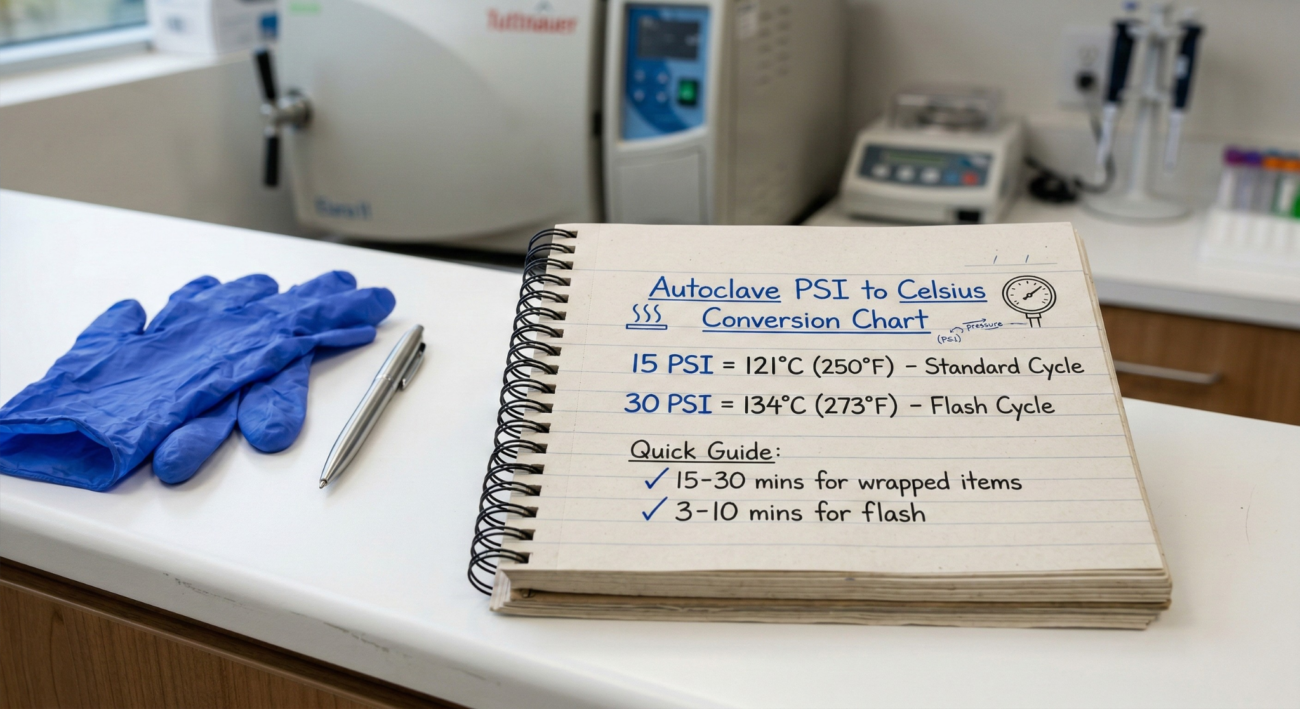 Tuttnauer
Autoclave PSI to Celsius
Conversion Chart
pressure
(PSI)
15 PSI = 121°C (250°F) – Standard Cycle
30 PSI = 134°C (273°F) – Flash Cycle
Quick Guide:
✓ 15-30 mins for wrapped items
✓ 3-10 mins for flash